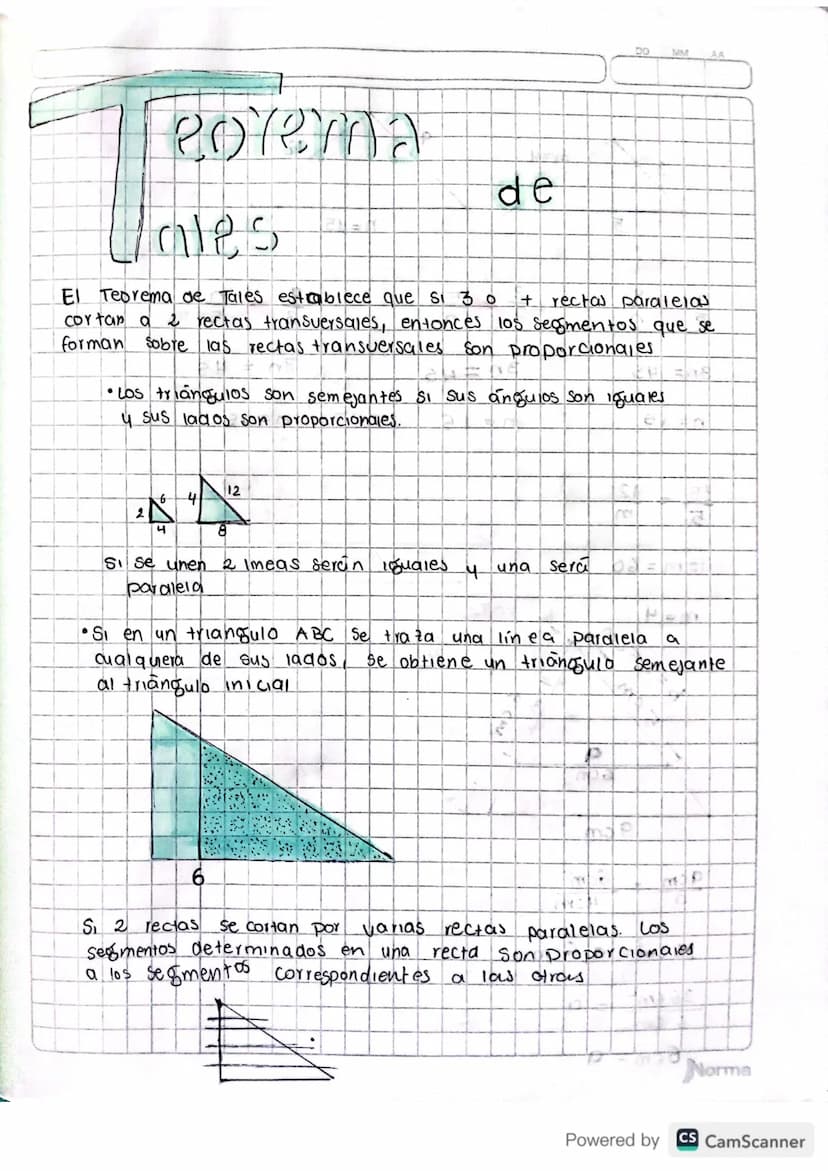 DD MM AA
Teorema
de
Tales
El Teorema de Tales establece que si 3 o + rectas paralelas
cortan a 2 rectas transversales, entonces los segmentos que se
forman sobre las rectas transversales son proporcionales
• Los triángulos son semejantes si sus ángulos son iguales
y sus lados son proporcionales.
2 6 4
4 12 8
Si se unen 2 lineas serán iguales y una será
paralela
• Si en un triangulo ABC se traza una línea paralela a
cualquera de sus lados, se obtiene un triángulo semejante
al triángulo inicial
6
Si 2 rectas se cortan por varias rectas paralelas. Los
segmentos determinados en una recta son proporcionales
a los segmentos correspondientes a las otras
Norma
Powered by CS CamScanner